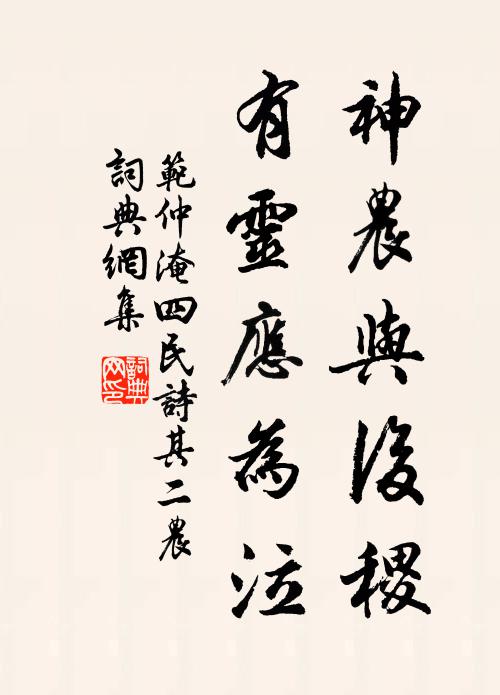 神農與後稷
有靈應為泣
範仲淹四民詩其二農
詞典網集
詞典網印